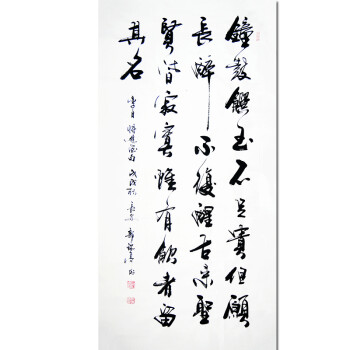 鐘鼓饌玉不足貴但願
長醉不復醒古来聖
賢皆寂寞惟有飲者留
其名
李白將進酒句戊戌秋